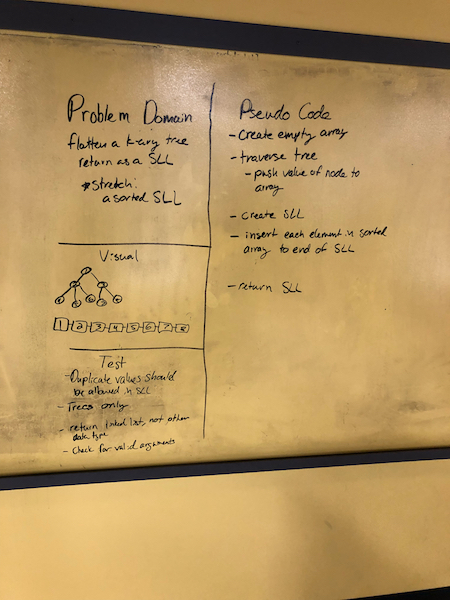 Problem Domain
flatten a k-ary tree
return as a SLL
*stretch:
a sorted SLL
Visual
1 2 3 4 5 6 7 8
Test
- Duplicate values should
be allowed in SLL
- Trees only
- return linked list, not other
data type
- Check for valid arguments
Pseudo Code
- Create empty array
- traverse tree
- push value of node to
array
- create SLL
- insert each element in sorted
array to end of SLL
- return SLL